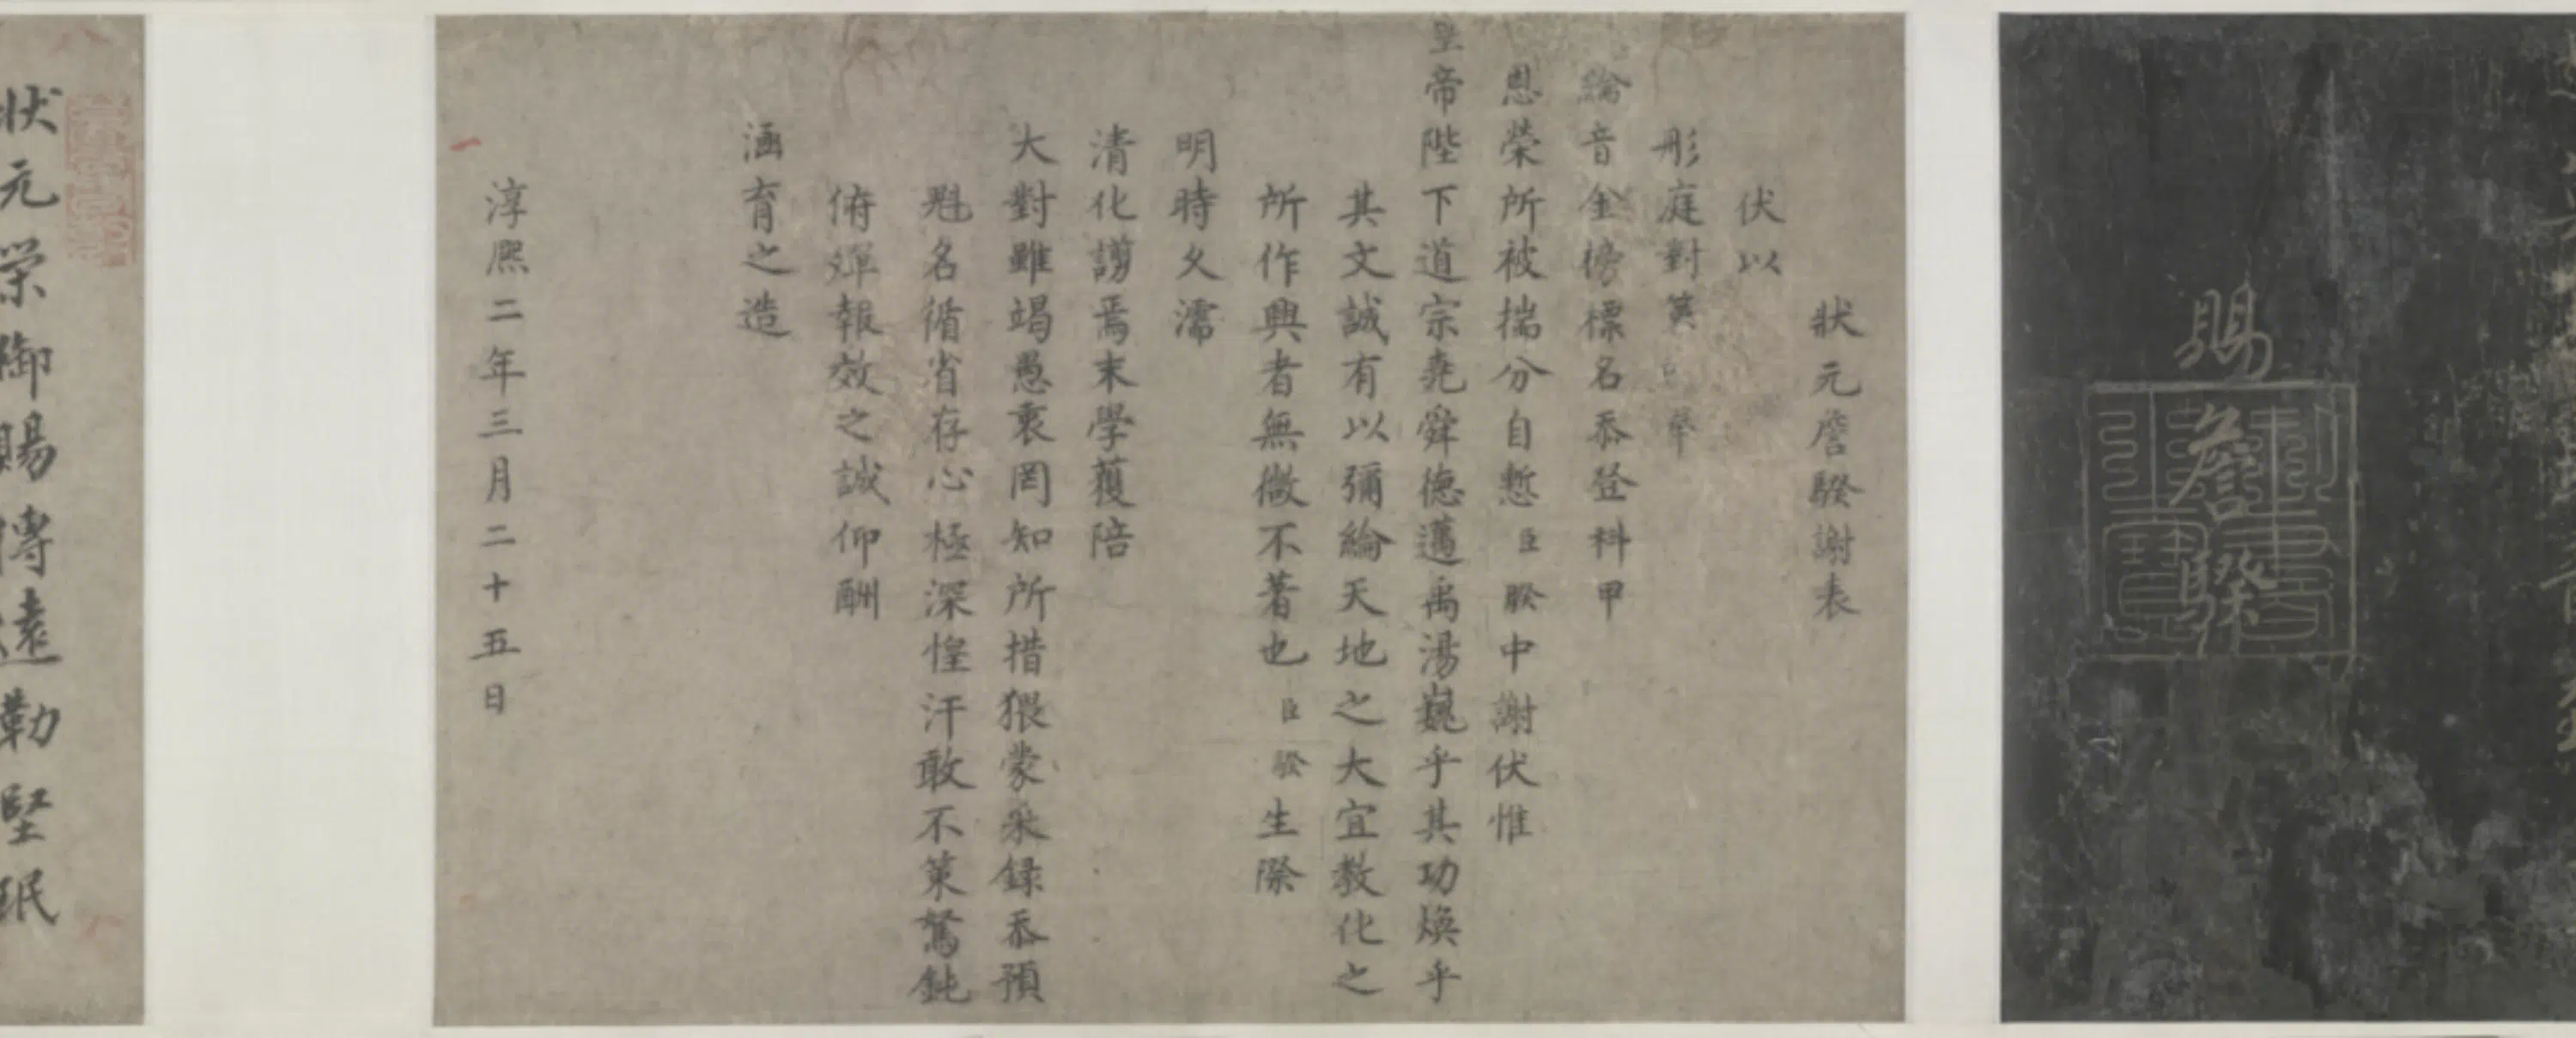 賜詹騤
狀元詹騤謝表
伏以
彤庭對策臣奉
綸音金榜標名忝登科甲
恩榮所被揣分自慙臣騤中謝伏惟
皇帝陛下道宗堯舜德邁禹湯巍乎其功煥乎
其文誠有以彌綸天地之大宜教化之
所作興者無微不著也臣騤生際
明時久濡
清化謭焉末學獲陪
大對雖竭愚衷罔知所措猥蒙采録忝預
魁名循省存心極深惶汗敢不策駑鈍
俯殫報效之誠仰酬
涵育之造
淳熙二年三月二十五日
狀元榮御賜傳遠勒堅珉